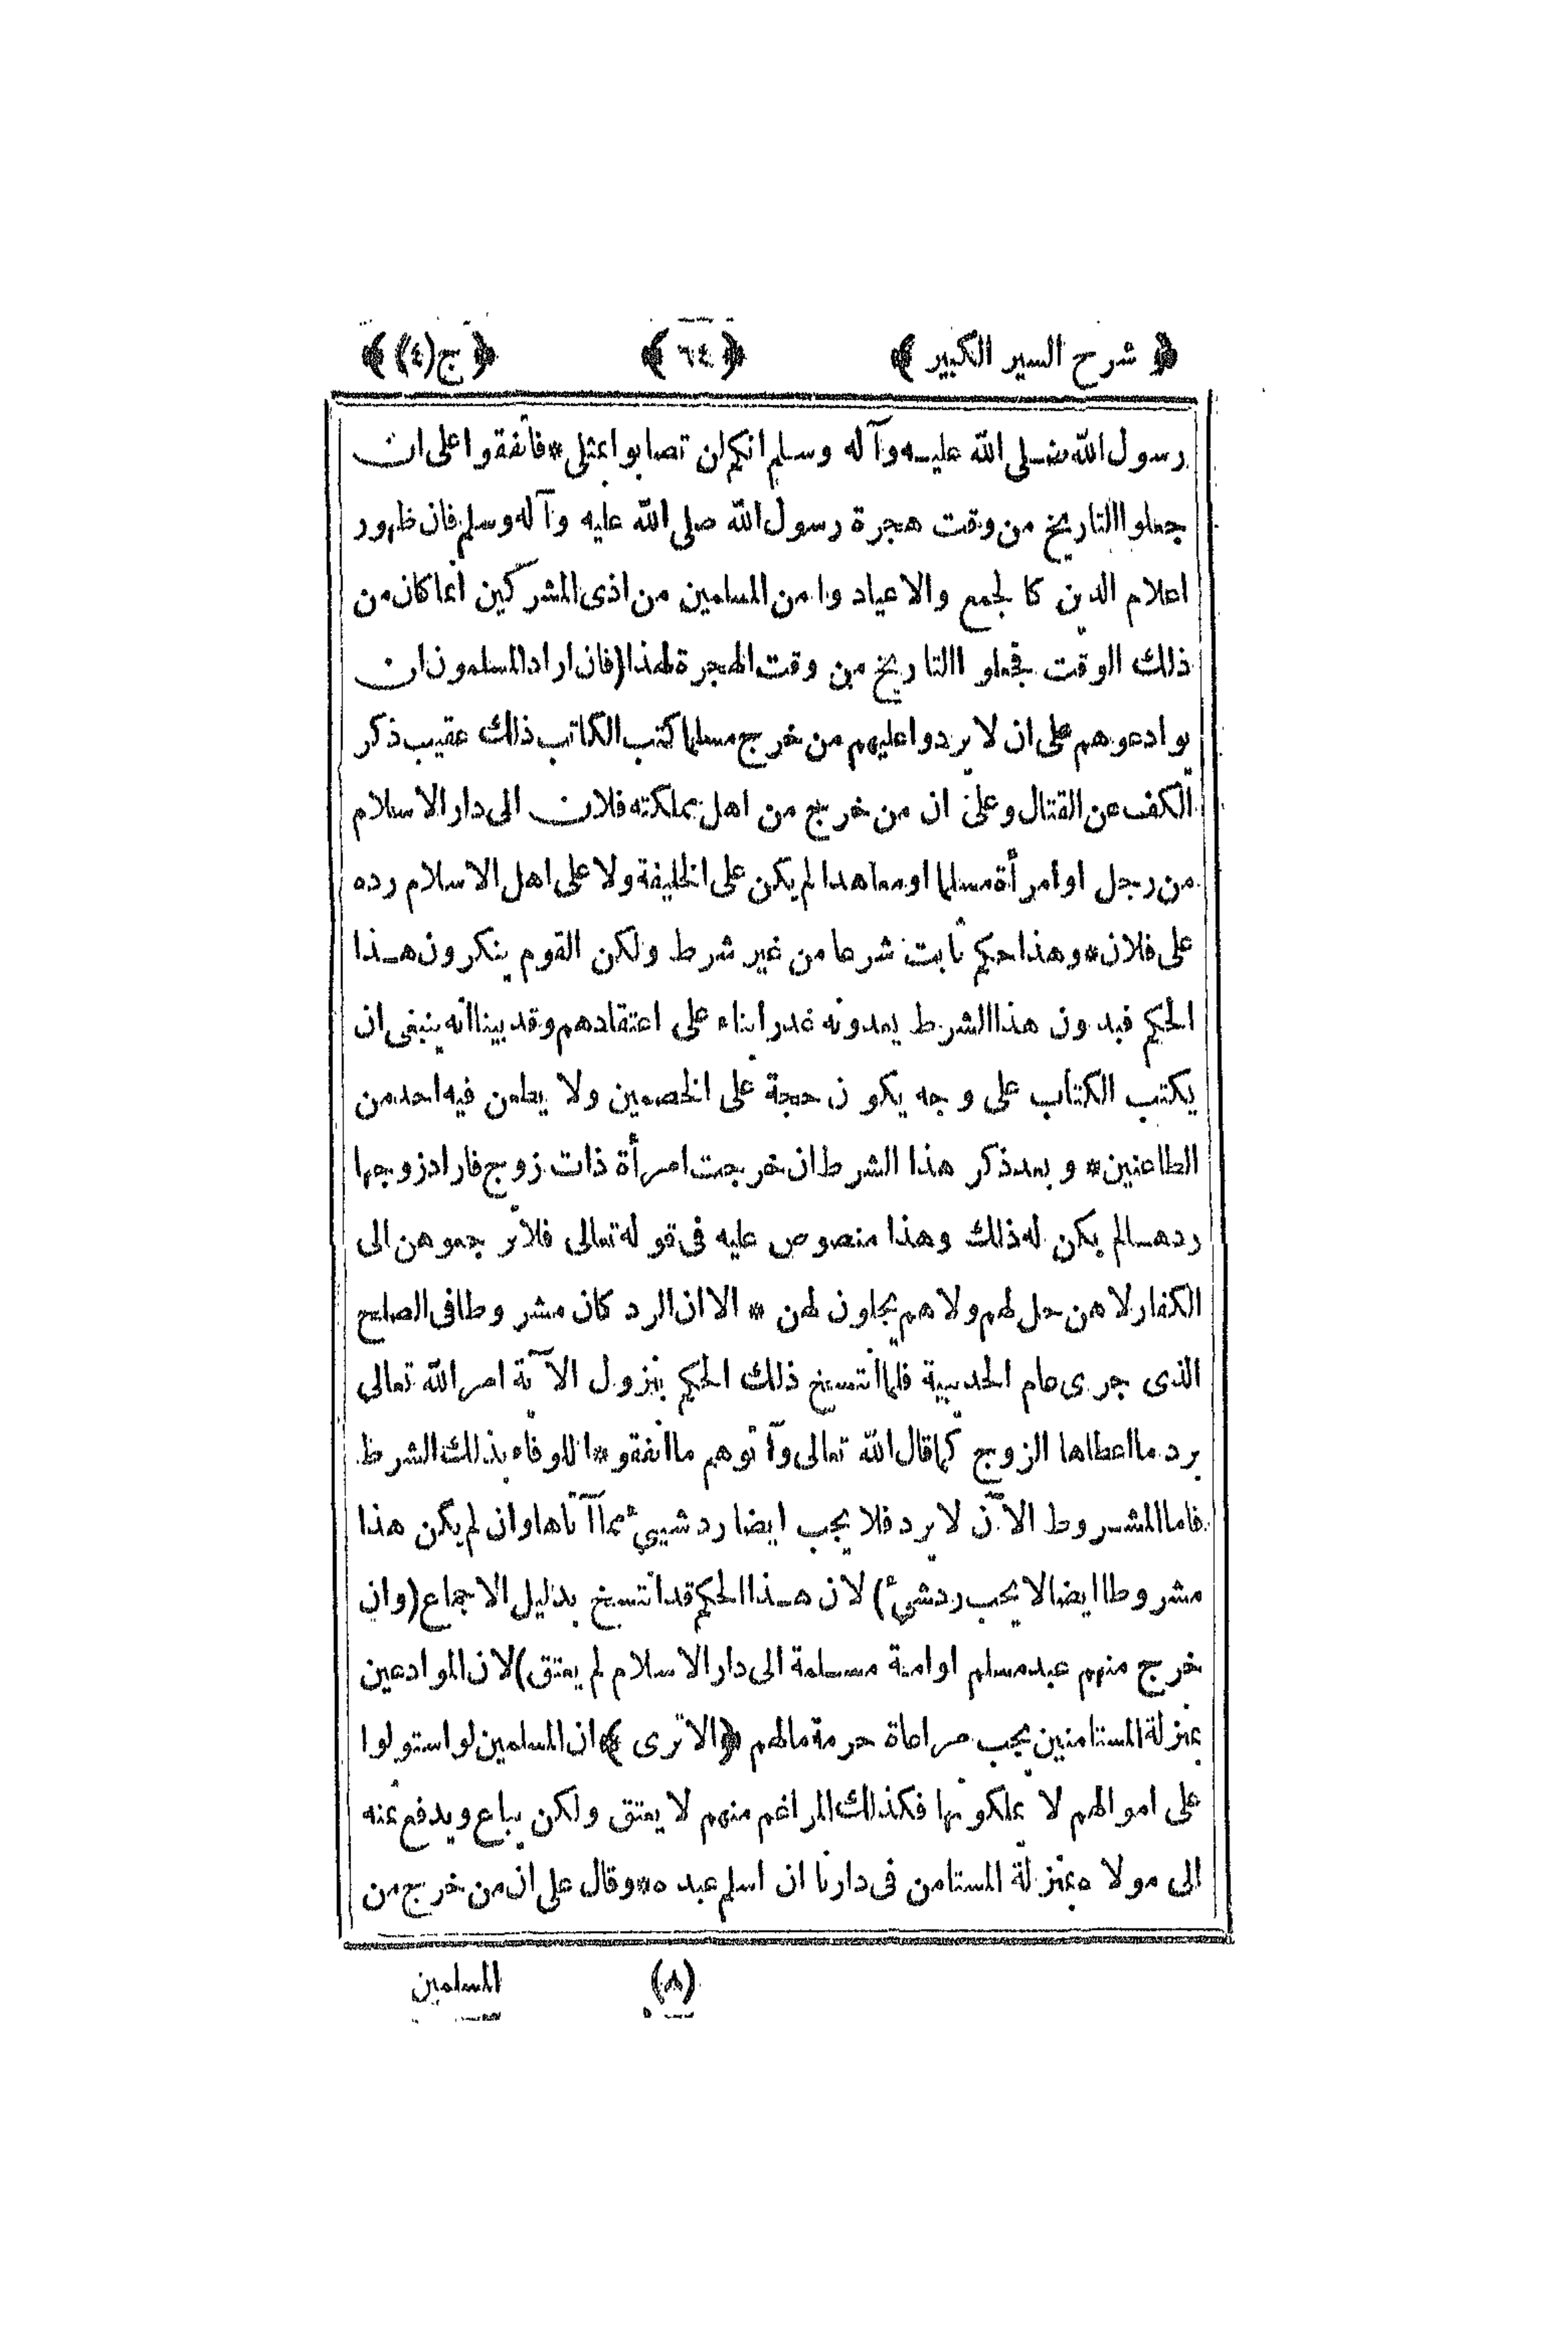 ﴿ شرح السير الكبير ﴾ ﴿ ٦٤ ﴾ ﴿ ج(٤) ﴾
رسول الله صلى الله عليه وآله وسلم انكم لن تصابوا بمثلى * فاتفقوا على ان
جعلوا التاريخ من وقت هجرة رسول الله صلى الله عليه وآله وسلم فان ظهور
اعلام الدين كالجمع والاعياد وامن المسلمين من اذى المشركين انما كان من
ذلك الوقت فجعلوا التاريخ من وقت الهجرة لهذا (فان اراد المسلمون ان
يوادعوهم على ان لا يردوا عليهم من خرج مسلما كتب الكاتب ذلك عقيب ذكر
الكف عن القتال وعلى ان من خرج من اهل مملكته فلان الى دار الاسلام
من رجل او امرأة مسلما او معاهدا لم يكن على الخليفة ولا على اهل الاسلام رده
على فلان * وهذا حكم ثابت شرعا من غير شرط ولكن القوم ينكرون هذا
الحكم فبدون هذا الشرط يعدونه غدرا بناء على اعتقادهم وقد بينا انه ينبغى ان
يكتب الكتاب على وجه يكون حجة على الخصمين ولا يطعن فيه احد من
الطاعنين * وبعد ذكر هذا الشرط ان خرجت امرأة ذات زوج فاراد زوجها
ردها لم يكن له ذلك وهذا منصوص عليه فى قوله تعالى فلا ترجعوهن الى
الكفار لا هن حل لهم ولا هم يحلون لهن * الا ان الرد كان مشروطا فى الصلح
الذى جرى عام الحديبية فلما انتسخ ذلك الحكم بنزول الآية امر الله تعالى
برد ما اعطاها الزوج كما قال الله تعالى وآتوهم ما انفقوا * للوفاء بذلك الشرط
فاما المشروط الآن لا يرد فلا يجب ايضا رد شيئ مما آتاها وان لم يكن هذا
مشروطا ايضا لا يجب رد شئ) لان هذا الحكم قد انتسخ بدليل الاجماع (وان
خرج منهم عبد مسلم او امة مسلمة الى دار الاسلام لم يعتق) لان الموادعين
بمنزلة المستامنين يجب مراعاة حرمة مالهم ﴿الا ترى﴾ ان المسلمين لو استولوا
على اموالهم لا يملكونها فكذلك المراغم منهم لا يعتق ولكن يباع ويدفع ثمنه
الى مولاه بمنزلة المستامن فى دارنا ان اسلم عبده * وقال على ان من خرج من
(٨) المسلمين